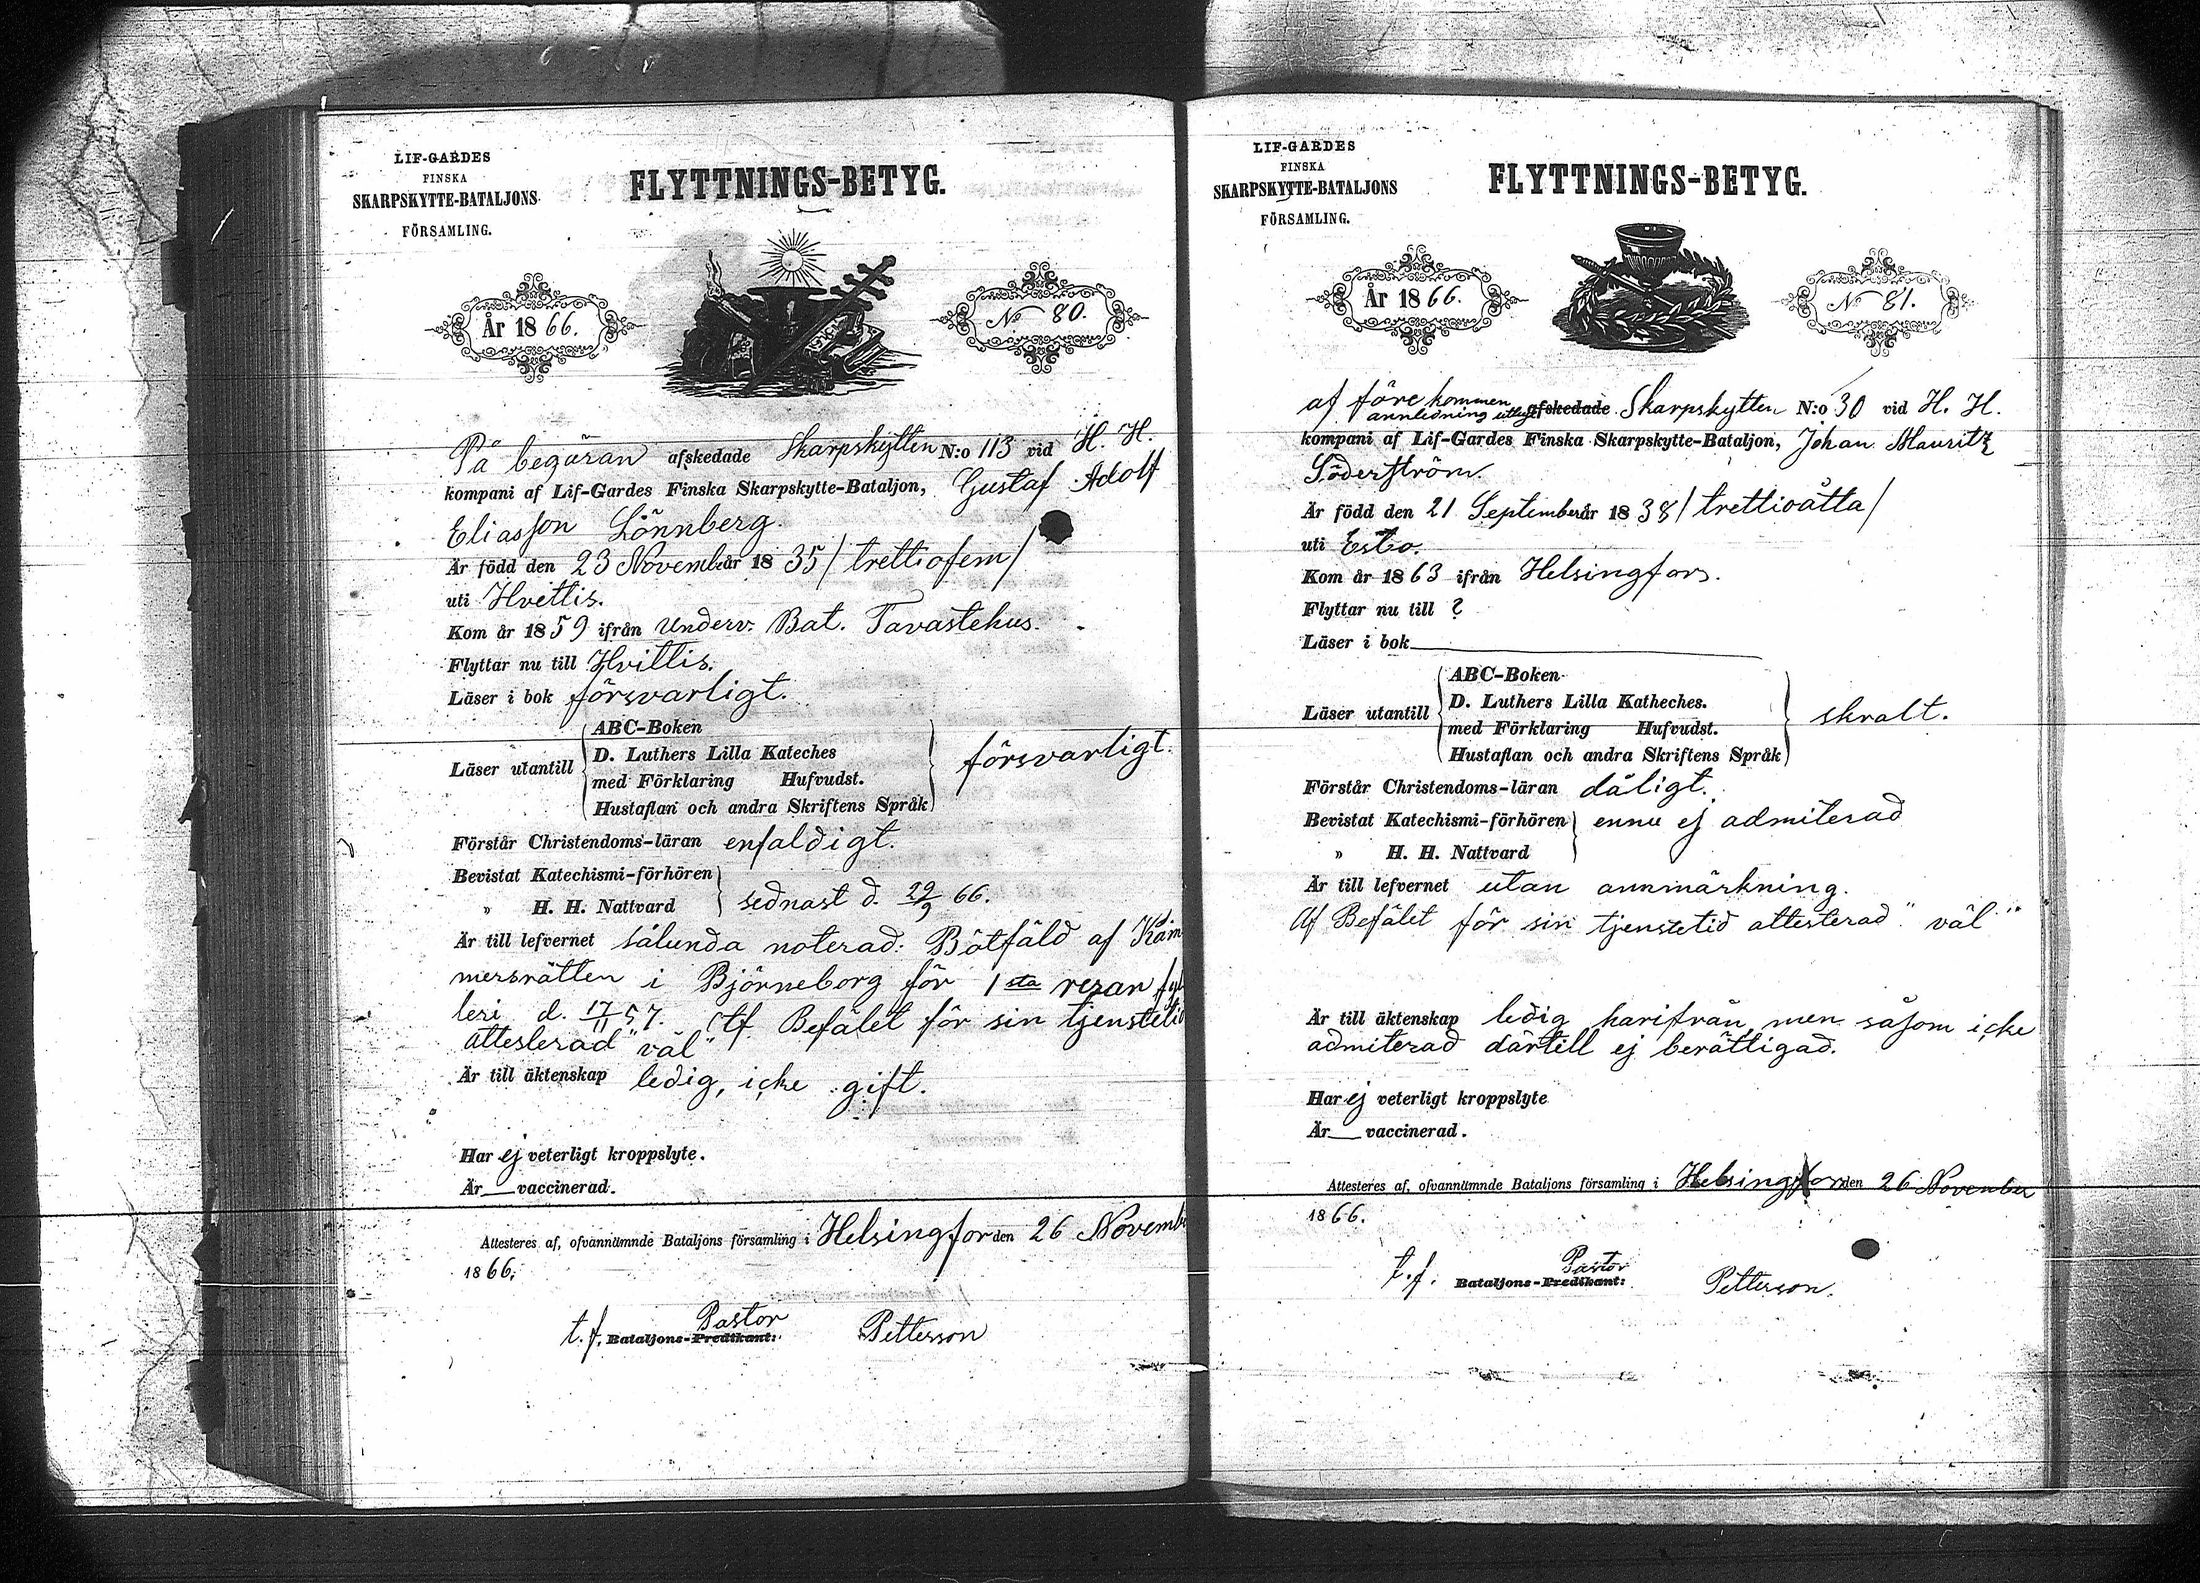 LIF-GARDES
FINSKA
SKARPSKYTTE-BATALJONS
FÖRSAMLING.
FLYTTNINGS-BETYG.
År 1866.
No 80.
På begäran afskedade Skarpskytten N:o 113 vid H. H.
kompani af Lif-Gardes Finska Skarpskytte-Bataljon, Gustaf Adolf
Eliasson Lönnberg.
Är född den 23 Novemb år 1835 / trettiofem /
uti Hvittis.
Kom år 1859 ifrån Underv. Bat. Tavastehus.
Flyttar nu till Hvittis.
Läser i bok försvarligt.
Läser utantill
ABC-Boken
D. Luthers Lilla Kateches
med Förklaring Hufvudst.
Hustaflan och andra Skriftens Språk
försvarligt.
Förstår Christendoms-läran enfaldigt.
Bevistat Katechismi-förhören
" H. H. Nattvard
sednast d. 29/9 66.
Är till lefvernet sålunda noterad: Bötfäld af Käm
mersrätten i Björneborg för 1sta resan fyl
leri d. 17/11 57. Af Befälet för sin tjenstetid
attesterad "väl"
Är till äktenskap ledig, icke gift.
Har ej veterligt kroppslyte.
Är — vaccinerad.
Attesteres af, ofvannämnde Bataljons församling i Helsingfors den 26 Novemb
1866.
t.f. Pastor
Bataljons-Predikant: Petterson
LIF-GARDES
FINSKA
SKARPSKYTTE-BATALJONS
FÖRSAMLING.
FLYTTNINGS-BETYG.
År 1866.
No 81.
af förekommen
annledning afskedade Skarpskytten N:o 30 vid H. H.
kompani af Lif-Gardes Finska Skarpskytte-Bataljon, Johan Mauritz
Söderström.
Är född den 21 September år 1838 / trettioåtta /
uti Esbo.
Kom år 1863 ifrån Helsingfors.
Flyttar nu till ?
Läser i bok —
Läser utantill
ABC-Boken
D. Luthers Lilla Katheches.
med Förklaring Hufvudst.
Hustaflan och andra Skriftens Språk
skralt.
Förstår Christendoms-läran dåligt.
Bevistat Katechismi-förhören
" H. H. Nattvard
ennu ej admiterad
Är till lefvernet utan anmärkning.
Af Befälet för sin tjenstetid attesterad "väl"
Är till äktenskap ledig härifrån men såsom icke
admiterad därtill ej berättigad.
Har ej veterligt kroppslyte
Är — vaccinerad.
Attesteres af, ofvannämnde Bataljons församling i Helsingfors den 26 November
1866.
t.f. Pastor
Bataljons-Predikant: Petterson.